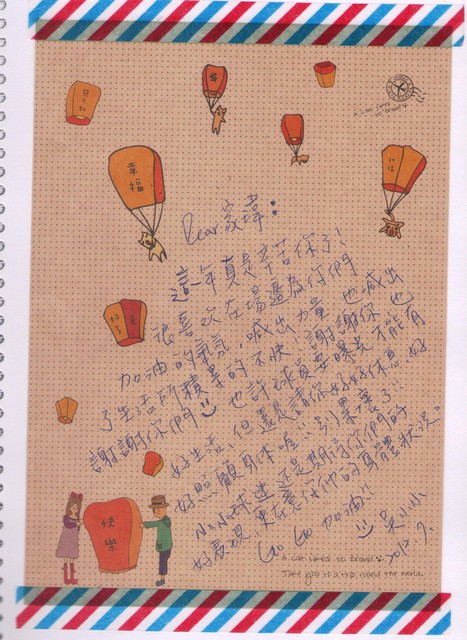 A cat likes to travel.
幸福
Dear 家瑋:
這一年真是辛苦你了!
很喜歡在場邊為你們
加油的氣氛,喊出力量,也喊出
了生活所積累的不快,謝謝你,也
謝謝你們 也許球員要曝光才能有
好生活,但還是請你好好休息,好
好照顧身体喔!!別累壞了!!
小小球迷還是期待你們的
好表現,更在意你們的身體狀況。
Go Go 加油!!
吳小小
快樂
A cat likes to travel.
Take you to a trip round the world.